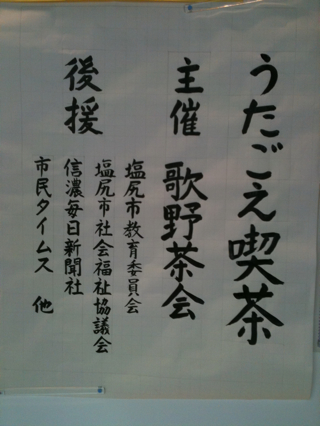 うたごえ喫茶
主催 歌野茶会
後援 塩尻市教育委員会
塩尻市社会福祉協議会
信濃毎日新聞社
市民タイムス 他